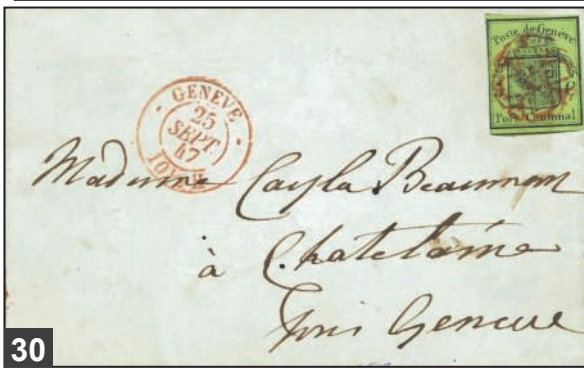 Poste de Genève
Port Cantonal
GENEVE
25
SEPT
47
Madame Cayla Beaumont
à Chatelaine
Genève
30